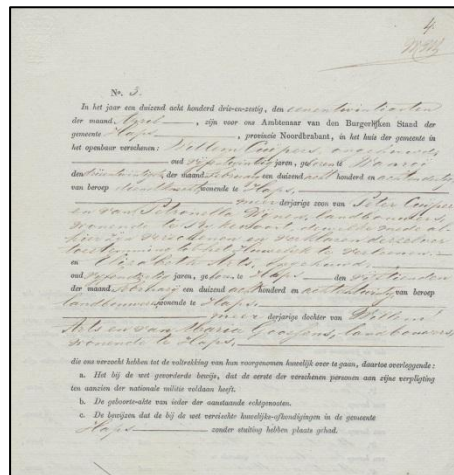 4.
No. 3.
In het jaar een duizend acht honderd drie-en-zestig, den eenentwintigsten
der maand April, zijn voor ons Ambtenaar van den Burgerlijken Stand der
gemeente Haps, provincie Noordbrabant, in het huis der gemeente in
het openbaar verschenen: Willem Cuijpers, ongehuwd,
oud vijfentwintig jaren, geboren te Wanroi
den der maand Februarij een duizend acht honderd en achtendertig
van beroep dienstknecht wonende te Haps,
meerderjarige zoon van Peter Cuijpers
en van Petronella landbouwers
wonende te de mede al-
hier verschenen en verklaren derzelver
toestemming tot dit huwelijk te verleenen.
en Elisabeth Arts, ongehuwd
oud vijfendertig jaren, geboren te Haps den vijftienden
der maand Februarij een duizend achthonderd en achtentwintig van beroep
landbouwster wonende te Haps.
meerderjarige dochter van Willem
Arts en van Maria Goossens, landbouwers,
wonende te Haps.
die ons verzocht hebben tot de voltrekking van hun voorgenomen huwelijk over te gaan, daartoe overleggende:
a. Het bij de wet gevorderde bewijs, dat de eerste der verschenen personen aan zijne verpligting
ten aanzien der nationale militie voldaan heeft.
b. De geboorte-akte van ieder der aanstaande echtgenooten.
c. De bewijzen dat de bij de wet vereischte huwelijks-afkondigingen in de gemeente
Haps zonder stuiting hebben plaats gehad.